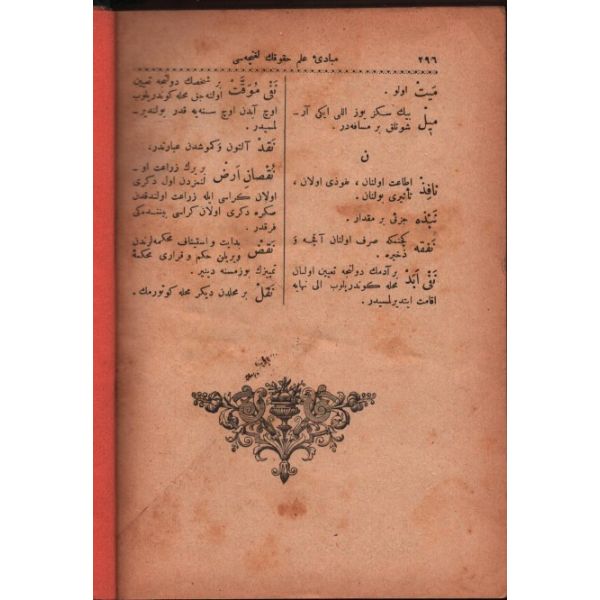 ٢٩٦
مبادئ علم حقوقك لغتچه‌سی
مَیِتْ اولو .
مِیلْ بیك سكز یوز اللی ایكی آر-
شونلق بر مسافه‌در .
ن
نَافِذْ اطاعت اولنان ، نفوذی اولان ،
تأثیری بولنان .
نَبْذَه جزئی بر مقدار .
نَفَقَه كچنمكه صرف اولنان آقچه و
ذخیره .
نَفْیِ اَبَدْ بر آدمك دولتجه تعیین اولنان
محله كوندریلوب الی نهایه
اقامت ایتدیرلمسیدر .
نَفْیِ مُوَقَّتْ بر شخصك دولتجه تعیین
اولنه‌جق محله كوندریلوب
اوچ آیدن اوچ سنه‌یه قدر بولندیر-
لمسیدر .
نَقْدْ آلتون و كموشدن عبارتدر .
نُقْصَانِ اَرْضْ بر یرك زراعت او-
لنمزدن اول دكری
اولان كراسی ایله زراعت اولندقدن
صكره دكری اولان كراسی بیننده‌كی
فرقدر .
نَقْضْ بدایت و استیناف محكمه‌لرندن
ویریلن حكم و قراری محكمۀ
تمییزك بوزمسنه دینیر .
نَقْلْ بر محلدن دیكر محله كوتورمك .